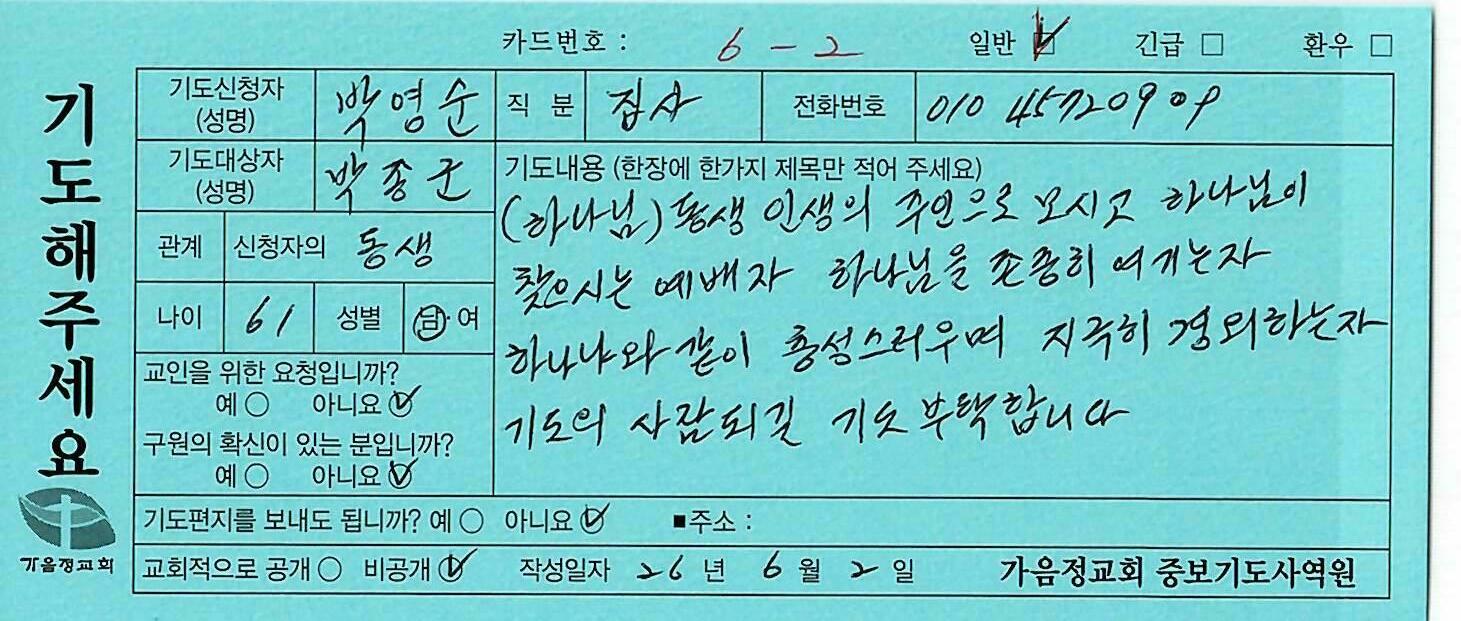 기도해주세요
가음정교회
카드번호 : 6 - 2 일반 긴급 환우
기도신청자 (성명) 박영순 직 분 집사 전화번호 010 45720909
기도대상자 (성명) 박종군
관계 신청자의 동생
나이 61 성별 남·여
교인을 위한 요청입니까?
예 아니요
구원의 확신이 있는 분입니까?
예 아니요
기도내용 (한장에 한가지 제목만 적어 주세요)
(하나님) 동생 인생의 주인으로 모시고 하나님이
찾으시는 예배자 하나님을 존중히 여기는자
하나냐와 같이 충성스러우며 지극히 경외하는자
기도의 사람되길 기도 부탁합니다
기도편지를 보내도 됩니까? 예 아니요 ■주소 :
교회적으로 공개 비공개 작성일자 26 년 6 월 2 일 가음정교회 중보기도사역원